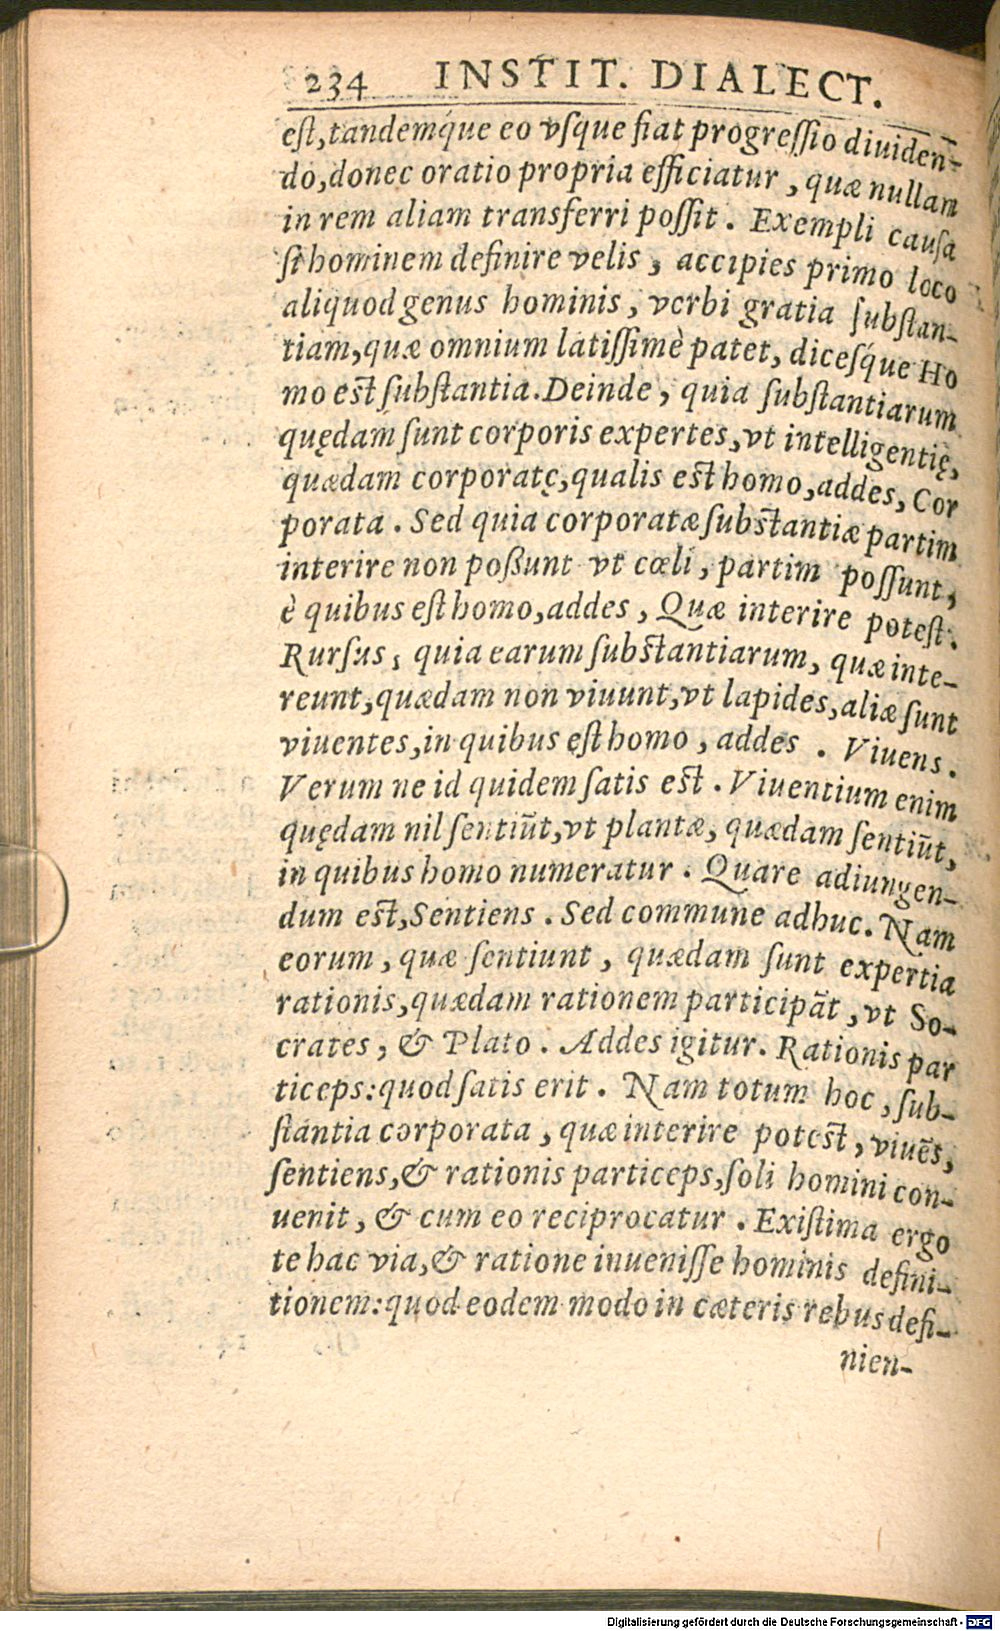 234 INSTIT. DIALECT.
est, tandemq́ue eo vsque fiat progressio diuiden-
do, donec oratio propria efficiatur, quæ nullam
in rem aliam transferri possit. Exempli causa
si hominem definire velis, accipies primo loco
aliquod genus hominis, verbi gratia substan-
tiam, quæ omnium latissimè patet, dicesq́ue Ho
mo est substantia. Deinde, quia substantiarum
quędam sunt corporis expertes, vt intelligentię,
quædam corporatę, qualis est homo, addes, Cor
porata. Sed quia corporatæ substantiæ partim
interire non poßunt vt cœli, partim possunt,
è quibus est homo, addes, Quæ interire potest.
Rursus, quia earum substantiarum, quæ inte-
reunt, quædam non viuunt, vt lapides, aliæ sunt
viuentes, in quibus est homo, addes. Viuens.
Verum ne id quidem satis est. Viuentium enim
quędam nil sentiūt, vt plantæ, quædam sentiūt,
in quibus homo numeratur. Quare adiungen-
dum est, Sentiens. Sed commune adhuc. Nam
eorum, quæ sentiunt, quædam sunt expertia
rationis, quædam rationem participāt, vt So-
crates, & Plato. Addes igitur. Rationis par
ticeps: quod satis erit. Nam totum hoc, sub-
stantia corporata, quæ interire potest, viuēs,
sentiens, & rationis particeps, soli homini con-
uenit, & cum eo reciprocatur. Existima ergo
te hac via, & ratione inuenisse hominis defini-
tionem: quod eodem modo in cæteris rebus defi-
nien-
Digitalisierung gefördert durch die Deutsche Forschungsgemeinschaft - DFG